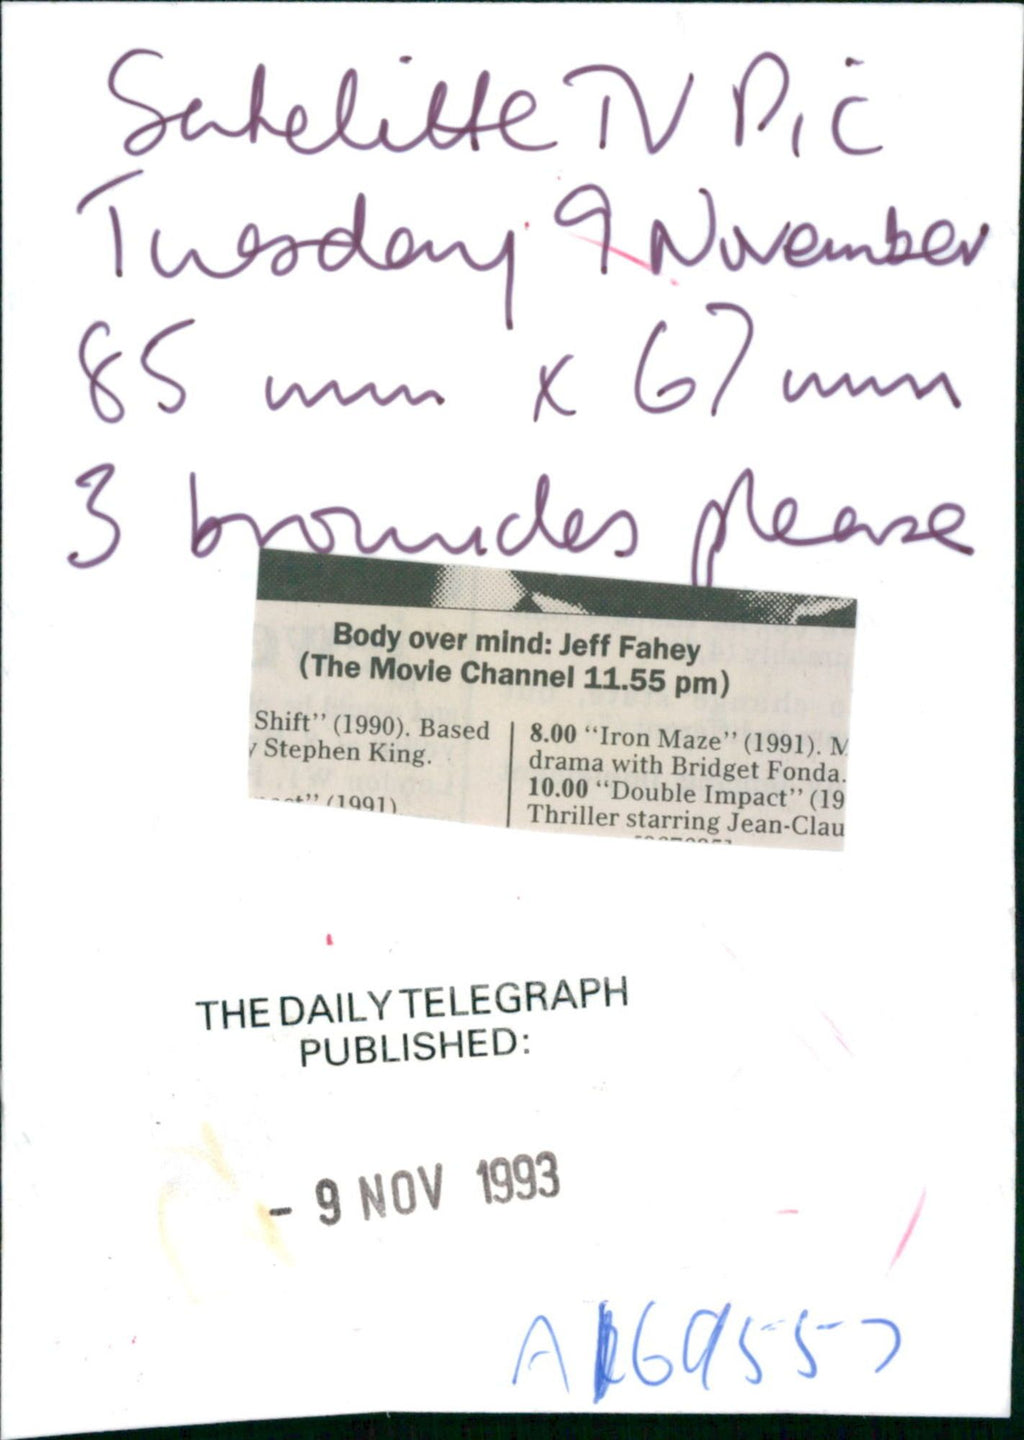 Satelitte TV Pic
Tuesday 9 November
85 mm x 67 mm
3 bromides please
Body over mind: Jeff Fahey
(The Movie Channel 11.55 pm)
Shift” (1990). Based
Stephen King.
(1991)
8.00 “Iron Maze” (1991). M
drama with Bridget Fonda.
10.00 “Double Impact” (19
Thriller starring Jean-Clau
THE DAILY TELEGRAPH
PUBLISHED:
- 9 NOV 1993